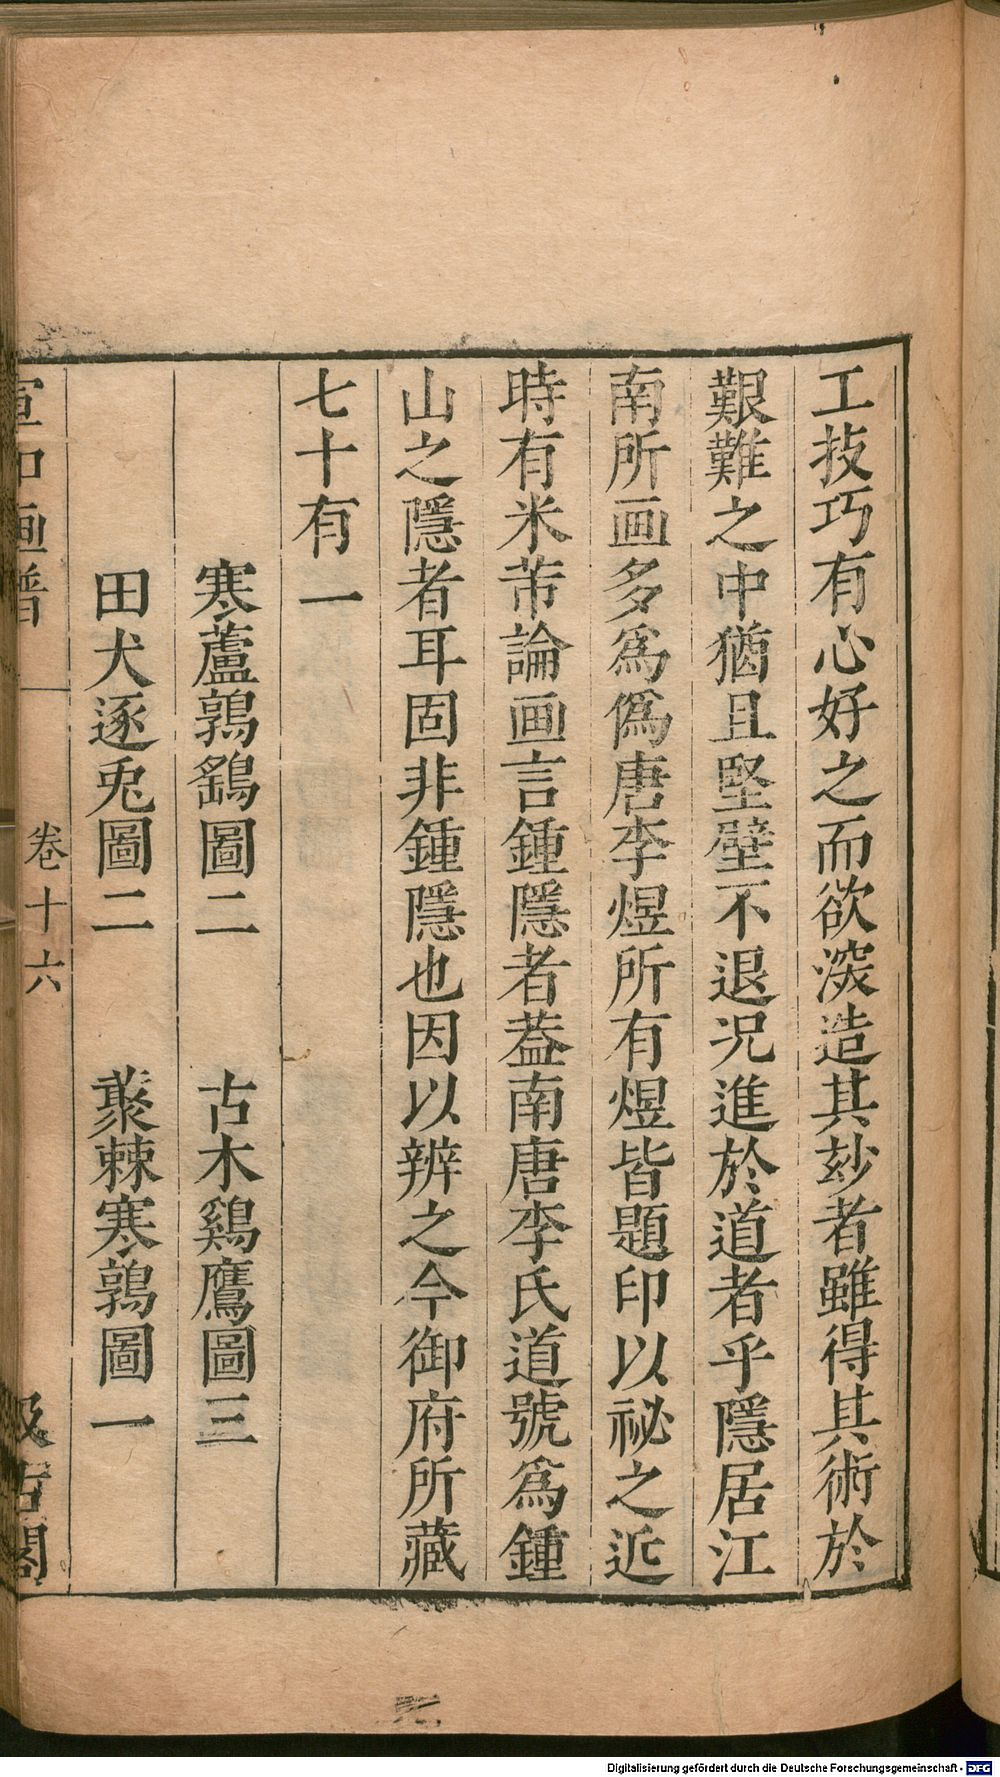 工技巧有心好之而欲深造其玅者雖得其術於
艱難之中猶且堅壁不退况進於道者乎隱居江
南所画多爲僞唐李煜所有煜皆題印以祕之近
時有米芾論画言鍾隱者葢南唐李氏道號爲鍾
山之隱者耳固非鍾隱也因以辨之今御府所藏
七十有一
寒蘆鶉鷂圖二　古木鷄鷹圖三
田犬逐兎圖二　叢棘寒鶉圖一
宣和画譜　卷十六　汲古閣
Digitalisierung gefördert durch die Deutsche Forschungsgemeinschaft - DFG